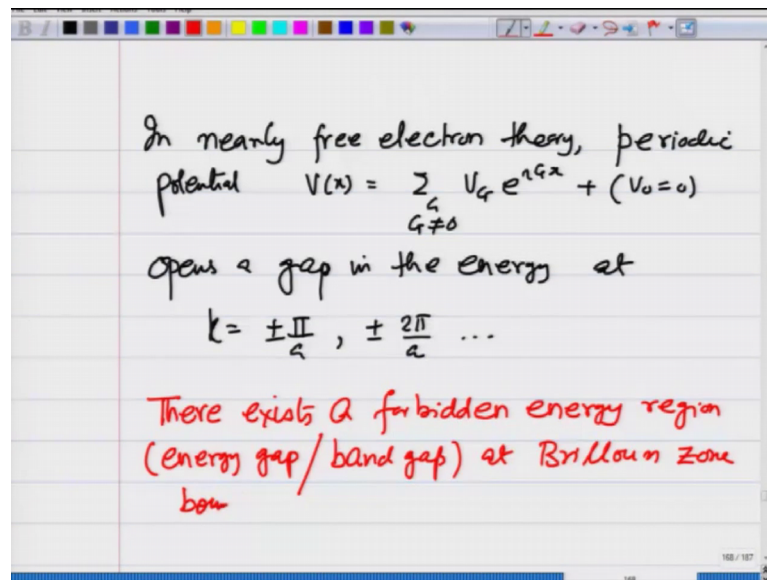 In nearly free electron theory, periodic
potential V(x) = ∑ V_G e^{iGx} + (V₀ = 0)
G
G≠0
opens a gap in the energy at
k = ±π/a , ± 2π/a ...
There exists a forbidden energy region
(energy gap/band gap) at Brillouin zone
bou
168 / 187